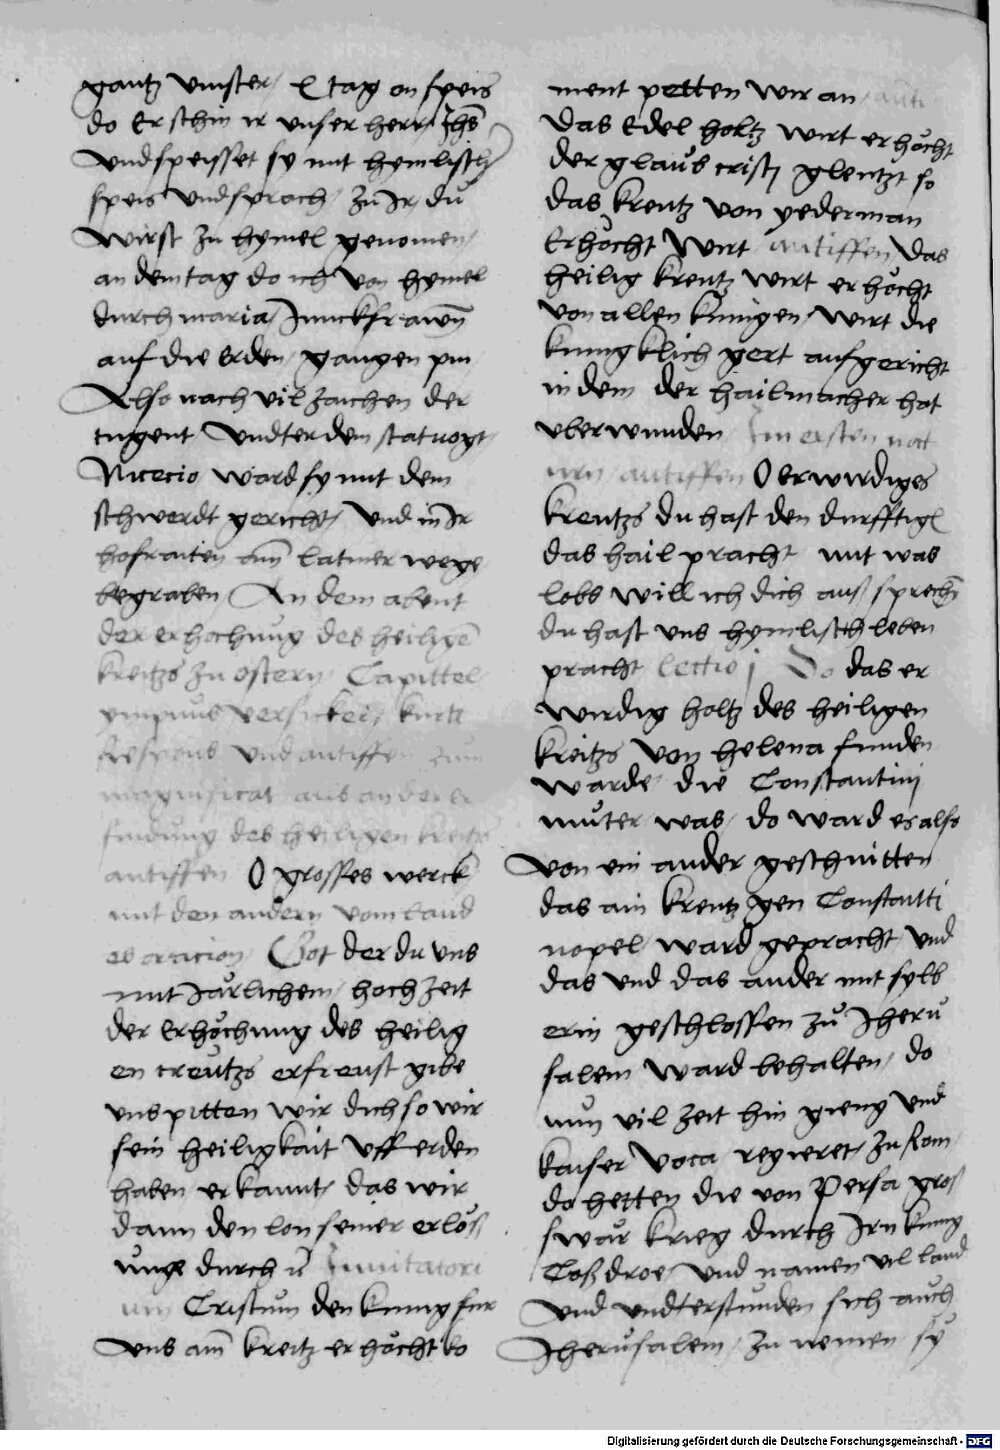 gantz vinster / L tag on speis
do Erschin ir unser herr Jhs
und speisset sy mit hymlischer
speis und sprach / zů Ir du
wirst zu hymel genomen /
an dem tag do ich von hymel
durch maria / Junckfrawen
auf die Erden / gangen pin
Also nach vil zaichen der
tugent undter dem statvogt
Nicecio ward sy mit dem
schwerdt gericht / und in Ir
hofraiten am latiner wege
begraben / An dem abent
der erhochung des heiligen
kreitzs zu ostern / Capittel
ympnus versickel / kurtz
Respons und antiffen zum
magnificat aus an der er
findung des heiligen kreitzs
antiffen O grosses werck
mit den andern vom laud
es oracion / Got der du uns
mit Järlichem / hochzeit
der Erhöchung des heilig
en creützs erfreust gibe
uns pitten wir dich so wir
sein heiligkait uff erden
haben erkannt / das wir
dann den lon seiner erlöß
unge durch ü Invitatori
um Cristum den kunig fur
uns am kreitz erhöcht ko
ment petten wir an / anti
das Edel holtz wirt erhöcht
der glaub cristi glentzt so
das kreutz von yederman
Erhöcht wirt antiffen / das
heilig kreutz wirt erhöcht
von allen kunigen / wirt die
kunigklich gert aufgericht
in dem der hailmacher hat
uberwunden Im ersten noct
urn / antiffen O erwirdiges
kreutzs du hast den durfftigen
das hail pracht mit was
lobs will ich dich auß sprechen
du hast uns hymlisch leben
pracht lectio j Do das er
wirdig holtz des heiligen
kreitzs von helena funden
warde / die Constantini
muter was / do ward es also
von ein ander geschnitten
das ain kreutz gen Constanti
nopel / ward gepracht / und
das und das ander mit sylb
erin geschlossen zů Jheru
salem ward behalten / do
nun vil zeit hin gieng und
kaiser voca regieret / zu Rom
do hetten die von Persa groß
swär krieg durch Irn kunig
Coßdroe / und namen vil land
und undterstunden sich auch
Jherusalem / zu nemen sy
Digitalisierung gefördert durch die Deutsche Forschungsgemeinschaft - DFG